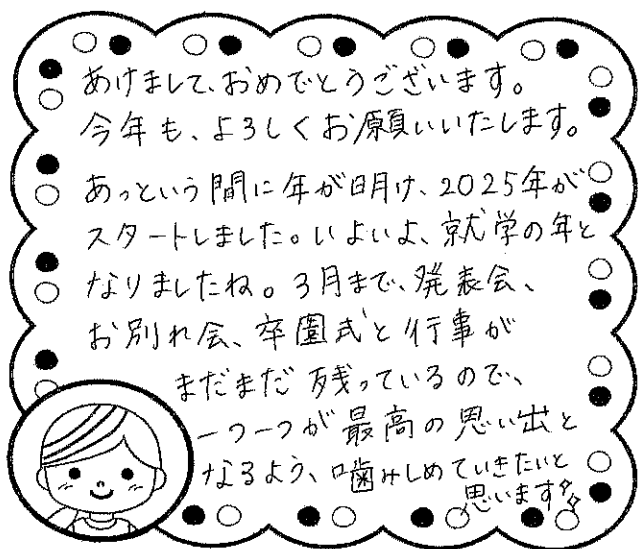 あけまして、おめでとうございます。
今年も、よろしくお願いいたします。
あっという間に年が明け、2025年が
スタートしました。いよいよ、就学の年と
なりましたね。3月まで、発表会、
お別れ会、卒園式と行事が
まだまだ残っているので、
一つ一つが最高の思い出と
なるよう、噛みしめていきたいと
思います